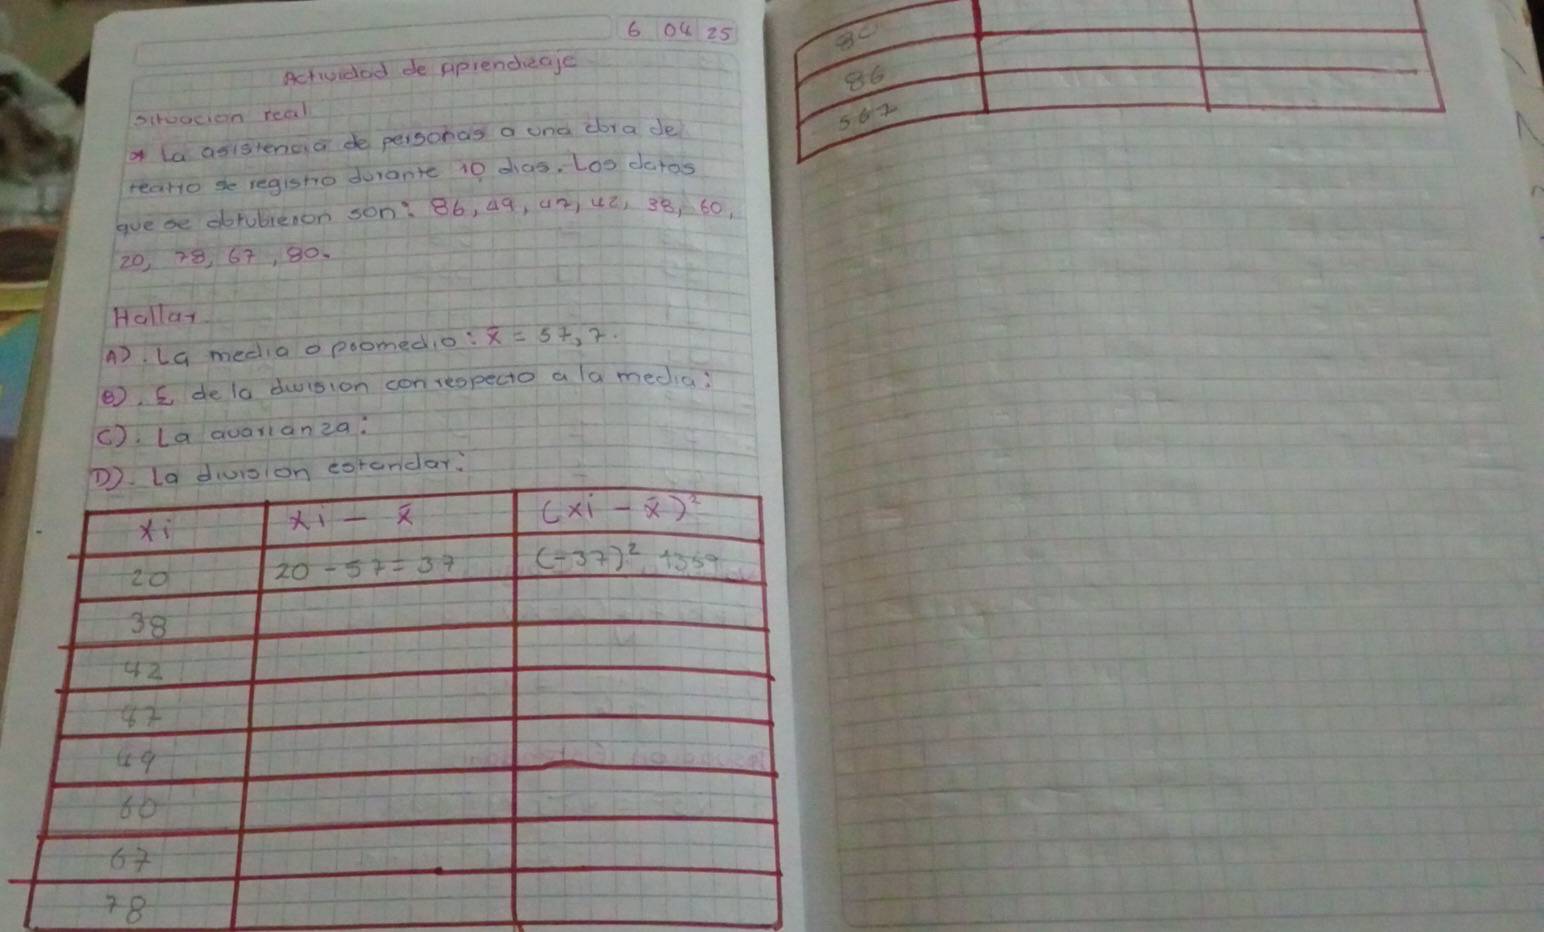 6 04 25
Actividad de aprendizaje
situacion real
La asistencia de personas a una obra de
teatro se registro durante 10 dias. Los datos
que se obtubieron son: 86, 49, 47, 42, 38, 60,
20, 78, 67, 80.
Hallar
A). La media o promedio: x̄ = 57,7.
B). Σ de la division con respecto a la media:
C). La avarianza:
D). La division estandar:
xi xi - x̄ (xi - x̄)²
20 20 - 57 = 37 (-37)²
38
42
47
49
60
67
78
80
86
567